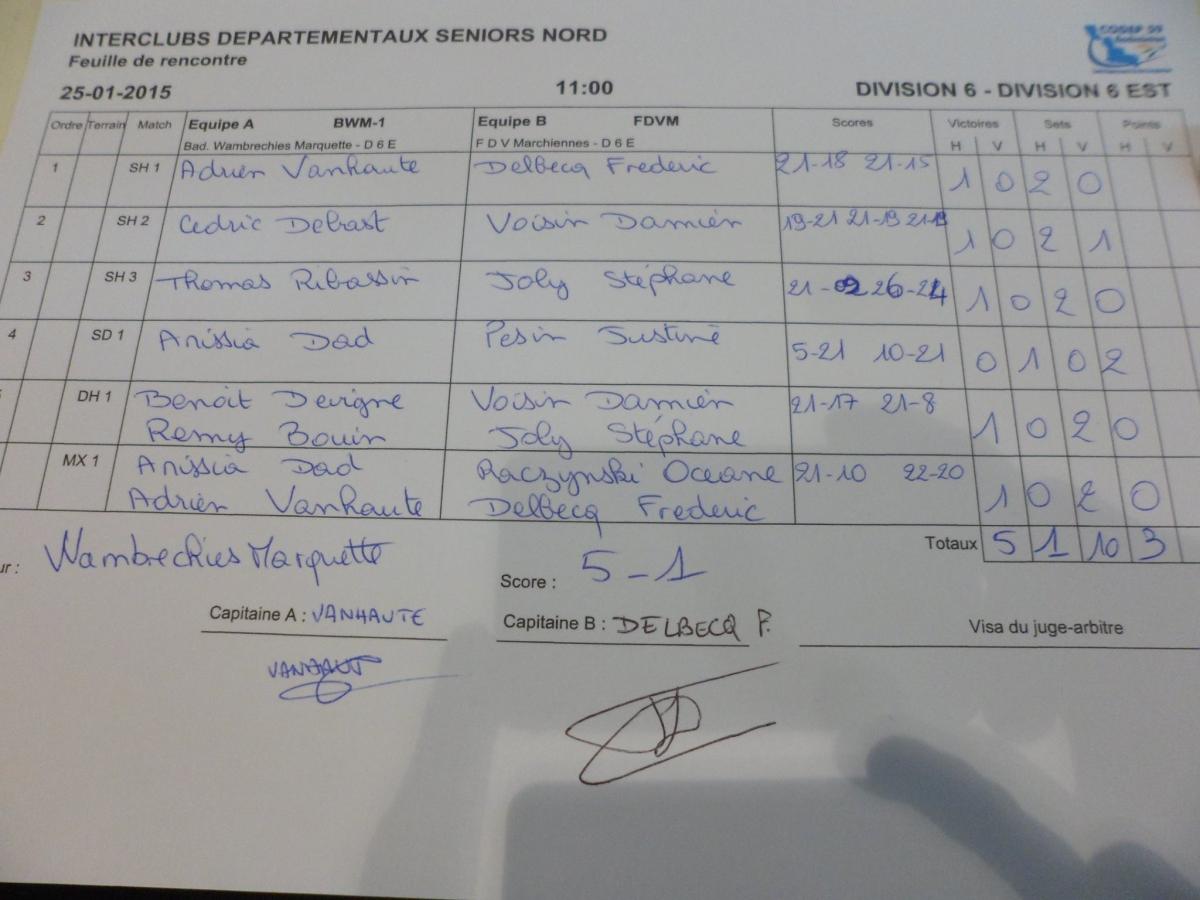 INTERCLUBS DEPARTEMENTAUX SENIORS NORD
CODEP 59
Feuille de rencontre
25-01-2015 11:00 DIVISION 6 - DIVISION 6 EST
Ordre Terrain Match Equipe A BWM-1 Equipe B FDVM Scores Victoires Sets Points
Bad. Wambrechies Marquette - D 6 E F D V Marchiennes - D 6 E H V H V H V
1 SH 1 Adrien Vanhaute Delbecq Frederic 21-18 21-15 1 0 2 0
2 SH 2 Cedric Debast Voisin Damien 19-21 21-19 21-19 1 0 2 1
3 SH 3 Thomas Ribassin Joly Stéphane 21- 26-24 1 0 2 0
4 SD 1 Anissia Dad Pesin Justine 5-21 10-21 0 1 0 2
DH 1 Benoit Devigne Voisin Damien 21-17 21-8
Remy Bouin Joly Stéphane 1 0 2 0
MX 1 Anissia Dad Raczynski Oceane 21-10 22-20
Adrien Vanhaute Delbecq Frederic 1 0 2 0
Totaux 5 1 10 3
ur : Wambrechies Marquette Score : 5-1
Capitaine A : VANHAUTE Capitaine B : DELBECQ F. Visa du juge-arbitre